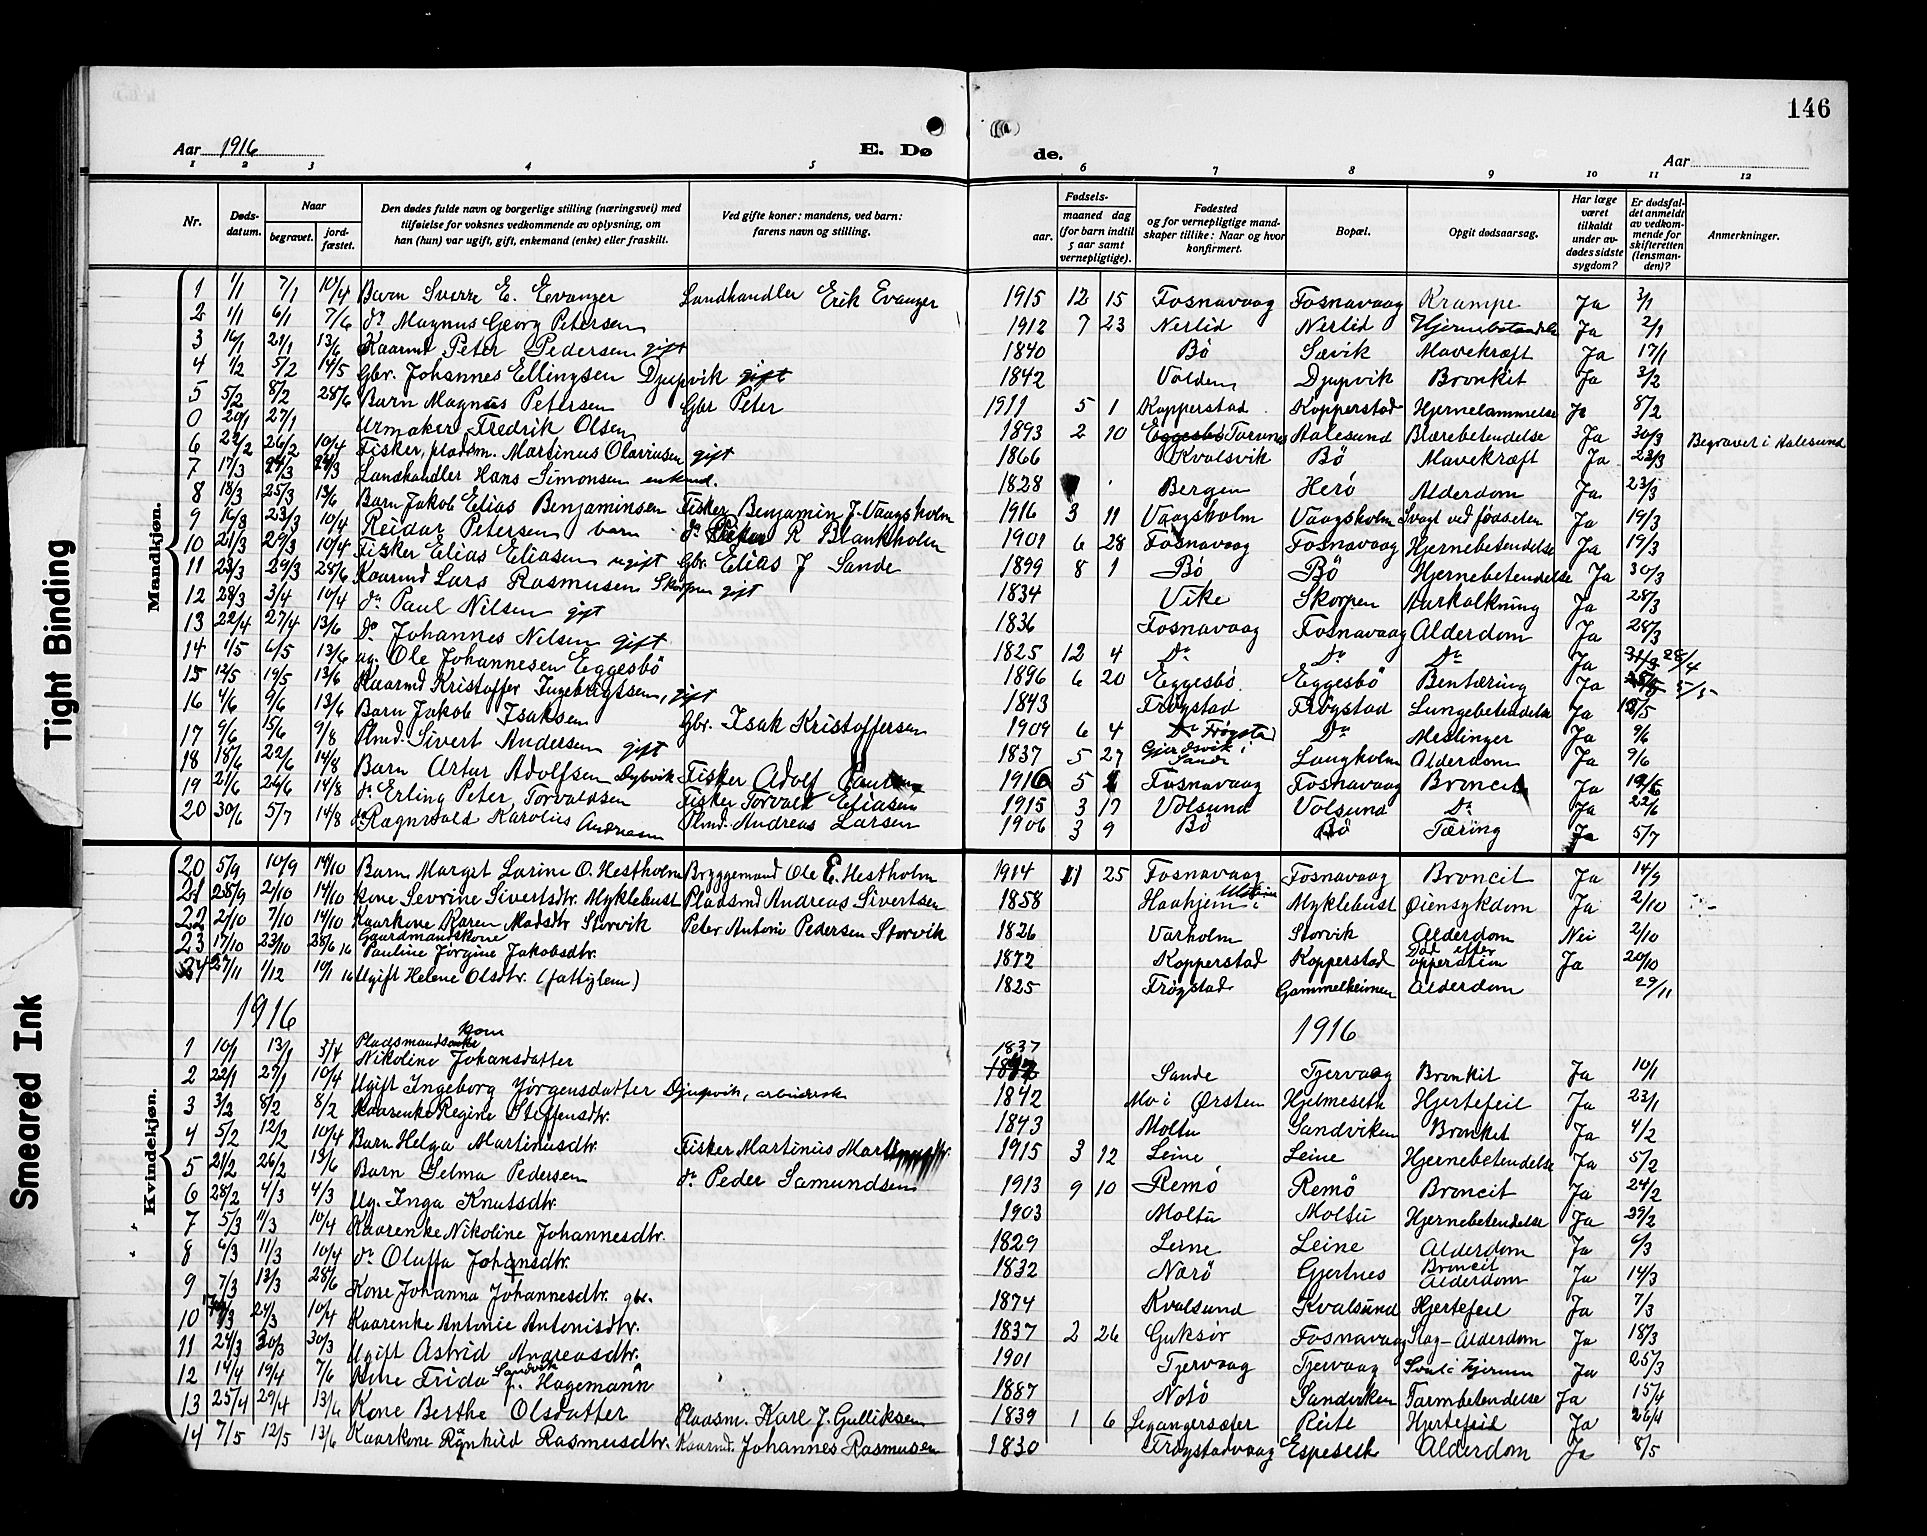 146
Aar 1916
E. Dø
de.
Aar
1 2 3 4 5 6 7 8 9 10 11 12
Nr.
Døds-
datum.
Naar
begravet.
jord-
fæstet.
Den dødes fulde navn og borgerlige stilling (næringsvei) med
tilføielse for voksnes vedkommende av oplysning, om
han (hun) var ugift, gift, enkemand (enke) eller fraskilt.
Ved gifte koner: mandens, ved barn:
farens navn og stilling.
Fødsels-
aar.
maaned dag
(for barn indtil
5 aar samt
vernepligtige).
Fødested
og for vernepligtige mand-
skaper tillike: Naar og hvor
konfirmert.
Bopæl.
Opgit dødsaarsag.
Har læge
været
tilkaldt
under av-
dødes sidste
sygdom?
Er dødsfal-
det anmeldt
av vedkom-
mende for
skifteretten
(lensman-
den)?
Anmerkninger.
Mandkjøn.
1 1/1 7/1 10/4 Barn Sverre E. Evanger Landhandler Erik Evanger 1915 12 15 Fosnavaag Fosnavaag Krampe Ja 3/1
2 1/1 6/1 7/6 do Magnus Georg Petersen 1912 7 23 Nerlid Nerlid Hjernebetændelse Ja 2/1
3 16/1 21/1 13/6 Kaarmd Peter Pedersen gift 1840 Bö Sævik Mavekræft Ja 17/1
4 1/2 5/2 14/5 Gbr. Johannes Ellingsen Djupvik gift 1842 Volden Djupvik Bronkit Ja 3/2
5 5/2 8/2 28/6 Barn Magnus Petersen Gbr Peter 1911 5 1 Kopperstad Kopperstad Hjernelammelse Ja 8/2
0 20/1 27/1 Urmaker Fredrik Olsen 1893 2 10 Eggesbö Aalesund Blærebetendelse Ja 30/3 Begravet i Aalesund
6 22/2 26/2 10/4 Fisker, pladsm. Martinus Olavrusen gift 1866 Kvalsvik Bö Mavekræft Ja 23/3
7 17/3 24/3 24/3 Landhandler Hans Simonsen enkmd. 1828 Bergen Herö Alderdom Ja 23/3
8 18/3 25/3 13/6 Barn Jakob Elias Benjaminsen Fisker Benjamin J. Vaagsholm 1916 3 11 Vaagsholm Vaagsholm Svagt ved fødselen Ja 19/3
9 16/3 23/3 10/4 Reidar Petersen barn do Peter R Blankholm 1901 6 28 Fosnavaag Fosnavaag Hjernebetendelse Ja 19/3
10 21/3 29/3 10/4 Fisker Elias Eliasen ugift Gbr. Elias J Sande 1899 8 1 Bö Bö Hjernebetendelse Ja 30/3
11 23/3 29/3 28/6 Kaarmd Lars Rasmusen Skorpen gift 1834 Vike Skorpen Aarkalkning Ja 28/3
12 28/3 3/4 10/4 do Paul Nilsen gift 1836 Fosnavaag Fosnavaag Alderdom Ja 28/3
13 22/4 27/4 13/6 Do Johannes Nilsen gift 1825 12 4 Do Do Do Ja 28/4
14 1/5 6/5 13/6 ug. Ole Johannesen Eggesbö 1896 6 20 Eggesbö Eggesbö Bentæring Ja 5/5
15 12/5 19/5 13/6 Kaarmd Kristoffer Ingebrigtsen, gift 1843 Frøgstad Frøgstad Lungebetendelse Ja 12/5
16 4/6 9/6 13/6 Barn Jakob Isaksen Gbr. Isak Kristoffersen 1909 6 4 Do Frøgstad Do Meslinger Ja 9/6
17 9/6 15/6 9/8 Plmd. Sivert Andersen gift 1837 5 27 Gjerdsvik i Sande Langholm Alderdom Ja 9/6
18 18/6 22/6 14/8 Barn Artur Adolfsen Dybvik Fisker Adolf 1916 5 Fosnavaag Fosnavaag Broncit Ja 19/6
19 21/6 26/6 14/8 do Erling Peter Torvaldsen Fisker Torvald Eliasen 1915 3 17 Volsund Volsund Do Ja 22/6
20 30/6 5/7 14/8 do Ragnvald Karolius Andreasen Plmd. Andreas Larsen 1906 3 9 Bö Bö Tæring Ja 5/7
Kvindekjøn.
20 5/9 10/9 14/10 Barn Margit Larine O. Hestholm Bryggemand Ole E. Hestholm 1914 11 25 Fosnavaag Fosnavaag Broncit Ja 14/9
21 28/9 2/10 14/10 Kone Sevrine Sivertsdtr. Myklebust Pladsmd Andreas Sivertsen 1858 Haahjem i Ulstein Myklebust Øiensykdom Ja 2/10
22 2/10 7/10 14/10 Kaarkone Karen Madsdtr Storvik Peter Antoni Pedersen Storvik 1826 Varholm Storvik Alderdom Nei 2/10
23 17/10 23/10 28/6 16 Gaardmandskone Pauline Jörgine Jakobsdtr. 1872 Kopperstad Kopperstad Död efter opperation Ja 20/10
24 27/11 1/12 14/1 16 Ugift Helene Olsdtr. (fattiglem) 1825 Frøgstad Gammelheimen Alderdom 29/11
1916 1916
1 10/1 13/1 3/4 Pladsmandsenke kone Nikoline Johansdatter 1837 Sande Tjervaag Bronkit Ja 10/1
2 22/1 27/1 10/4 Ugift Ingeborg Jørgensdatter Djupvik, arbeiderske 1842 Mo i Ørsten Hjelmeseth Hjertefeil Ja 23/1
3 3/2 8/2 8/2 Kaarenke Regine Steffensdtr. 1843 Moltu Sandviken Bronkit Ja 4/2
4 5/2 12/2 10/4 Barn Helga Martinusdtr. Fisker Martinius 1915 3 12 Leine Leine Hjernebetendelse Ja 5/2
5 21/2 26/2 13/6 Barn Selma Pedersen do Peder Samundsen 1913 9 10 Remö Remö Broncit Ja 24/2
6 28/2 4/3 4/3 Ug. Inga Knutsdtr. 1903 Moltu Moltu Hjernebetendelse Ja 29/2
7 5/3 11/3 10/4 Kaarenke Nikoline Johannesdtr. 1829 Leine Leine Alderdom Ja 6/3
8 6/3 11/3 10/4 do Oluffa Johansdtr. 1832 Narö Gjertnes Broncit Alderdom Ja 14/3
9 7/3 13/3 28/6 Kone Johanna Johannesdtr. gbr. 1874 Kvalsund Kvalsund Hjertefeil Ja 7/3
10 17/3 24/3 10/4 Kaarenke Antonie Antonisdtr. 1837 2 26 Guksør Fosnavaag Slag-Alderdom Ja 18/3
11 24/3 30/3 30/3 Ugift Astrid Andreasdtr. 1901 Tjervaag Tjervaag Svulst i hjernen Ja 25/3
12 14/4 19/4 7/6 Kone Frida Sandvik f. Hagemann 1887 Notö Sandviken Tarmbetendelse Ja 15/4
13 25/4 29/4 13/6 Kone Berthe Olsdatter Pladsm. Karl J. Gulliksen 1839 1 6 Leganger sæter Reite Hjertefeil Ja 26/4
14 7/5 12/5 13/6 Kaarkone Ragnhild Rasmusdtr. Kaarmd. Johannes Rasmusen 1830 Frøgstadvaag Espeseth Alderdom Ja 8/5
Tight Binding
Smeared Ink